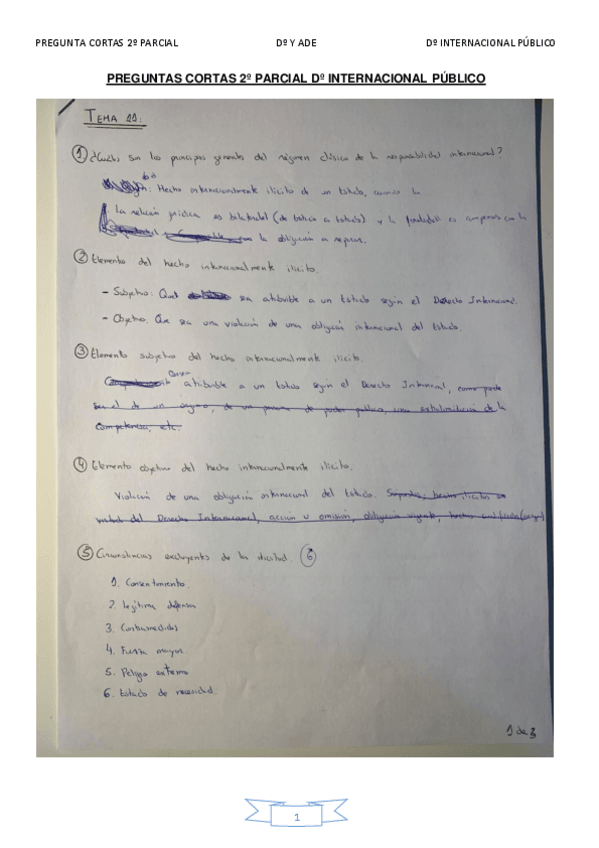 PREGUNTA CORTAS 2º PARCIAL Dº Y ADE Dº INTERNACIONAL PÚBLICO
PREGUNTAS CORTAS 2º PARCIAL Dº INTERNACIONAL PÚBLICO
TEMA 11:
① ¿Cuáles son los principios generales del régimen clásico de la responsabilidad internacional?
Hecho internacionalmente ilícito de un Estado, cuando la
la relación jurídica es bilateral (de Estado a Estado) y la
la obligación de reparar.
② Elementos del hecho internacionalmente ilícito.
- Subjetivo: Que sea atribuible a un Estado según el Derecho Internacional.
- Objetivo. Que sea una violación de una obligación internacional del Estado.
③ Elemento subjetivo del hecho internacionalmente ilícito.
atribuible a un Estado según el Derecho Internacional, como puede
ser el de un órgano, de una persona de poder público, una extralimitación de la
competencia, etc.
④ Elemento objetivo del hecho internacionalmente ilícito.
Violación de una obligación internacional del Estado.
del Derecho Internacional, acción u omisión, obligación vigente, hecho
⑤ Circunstancias excluyentes de la ilicitud. ⑥
1. Consentimiento.
2. Legítima defensa
3. Contramedidas
4. Fuerza mayor.
5. Peligro extremo
6. Estado de necesidad.
1 de 3
1